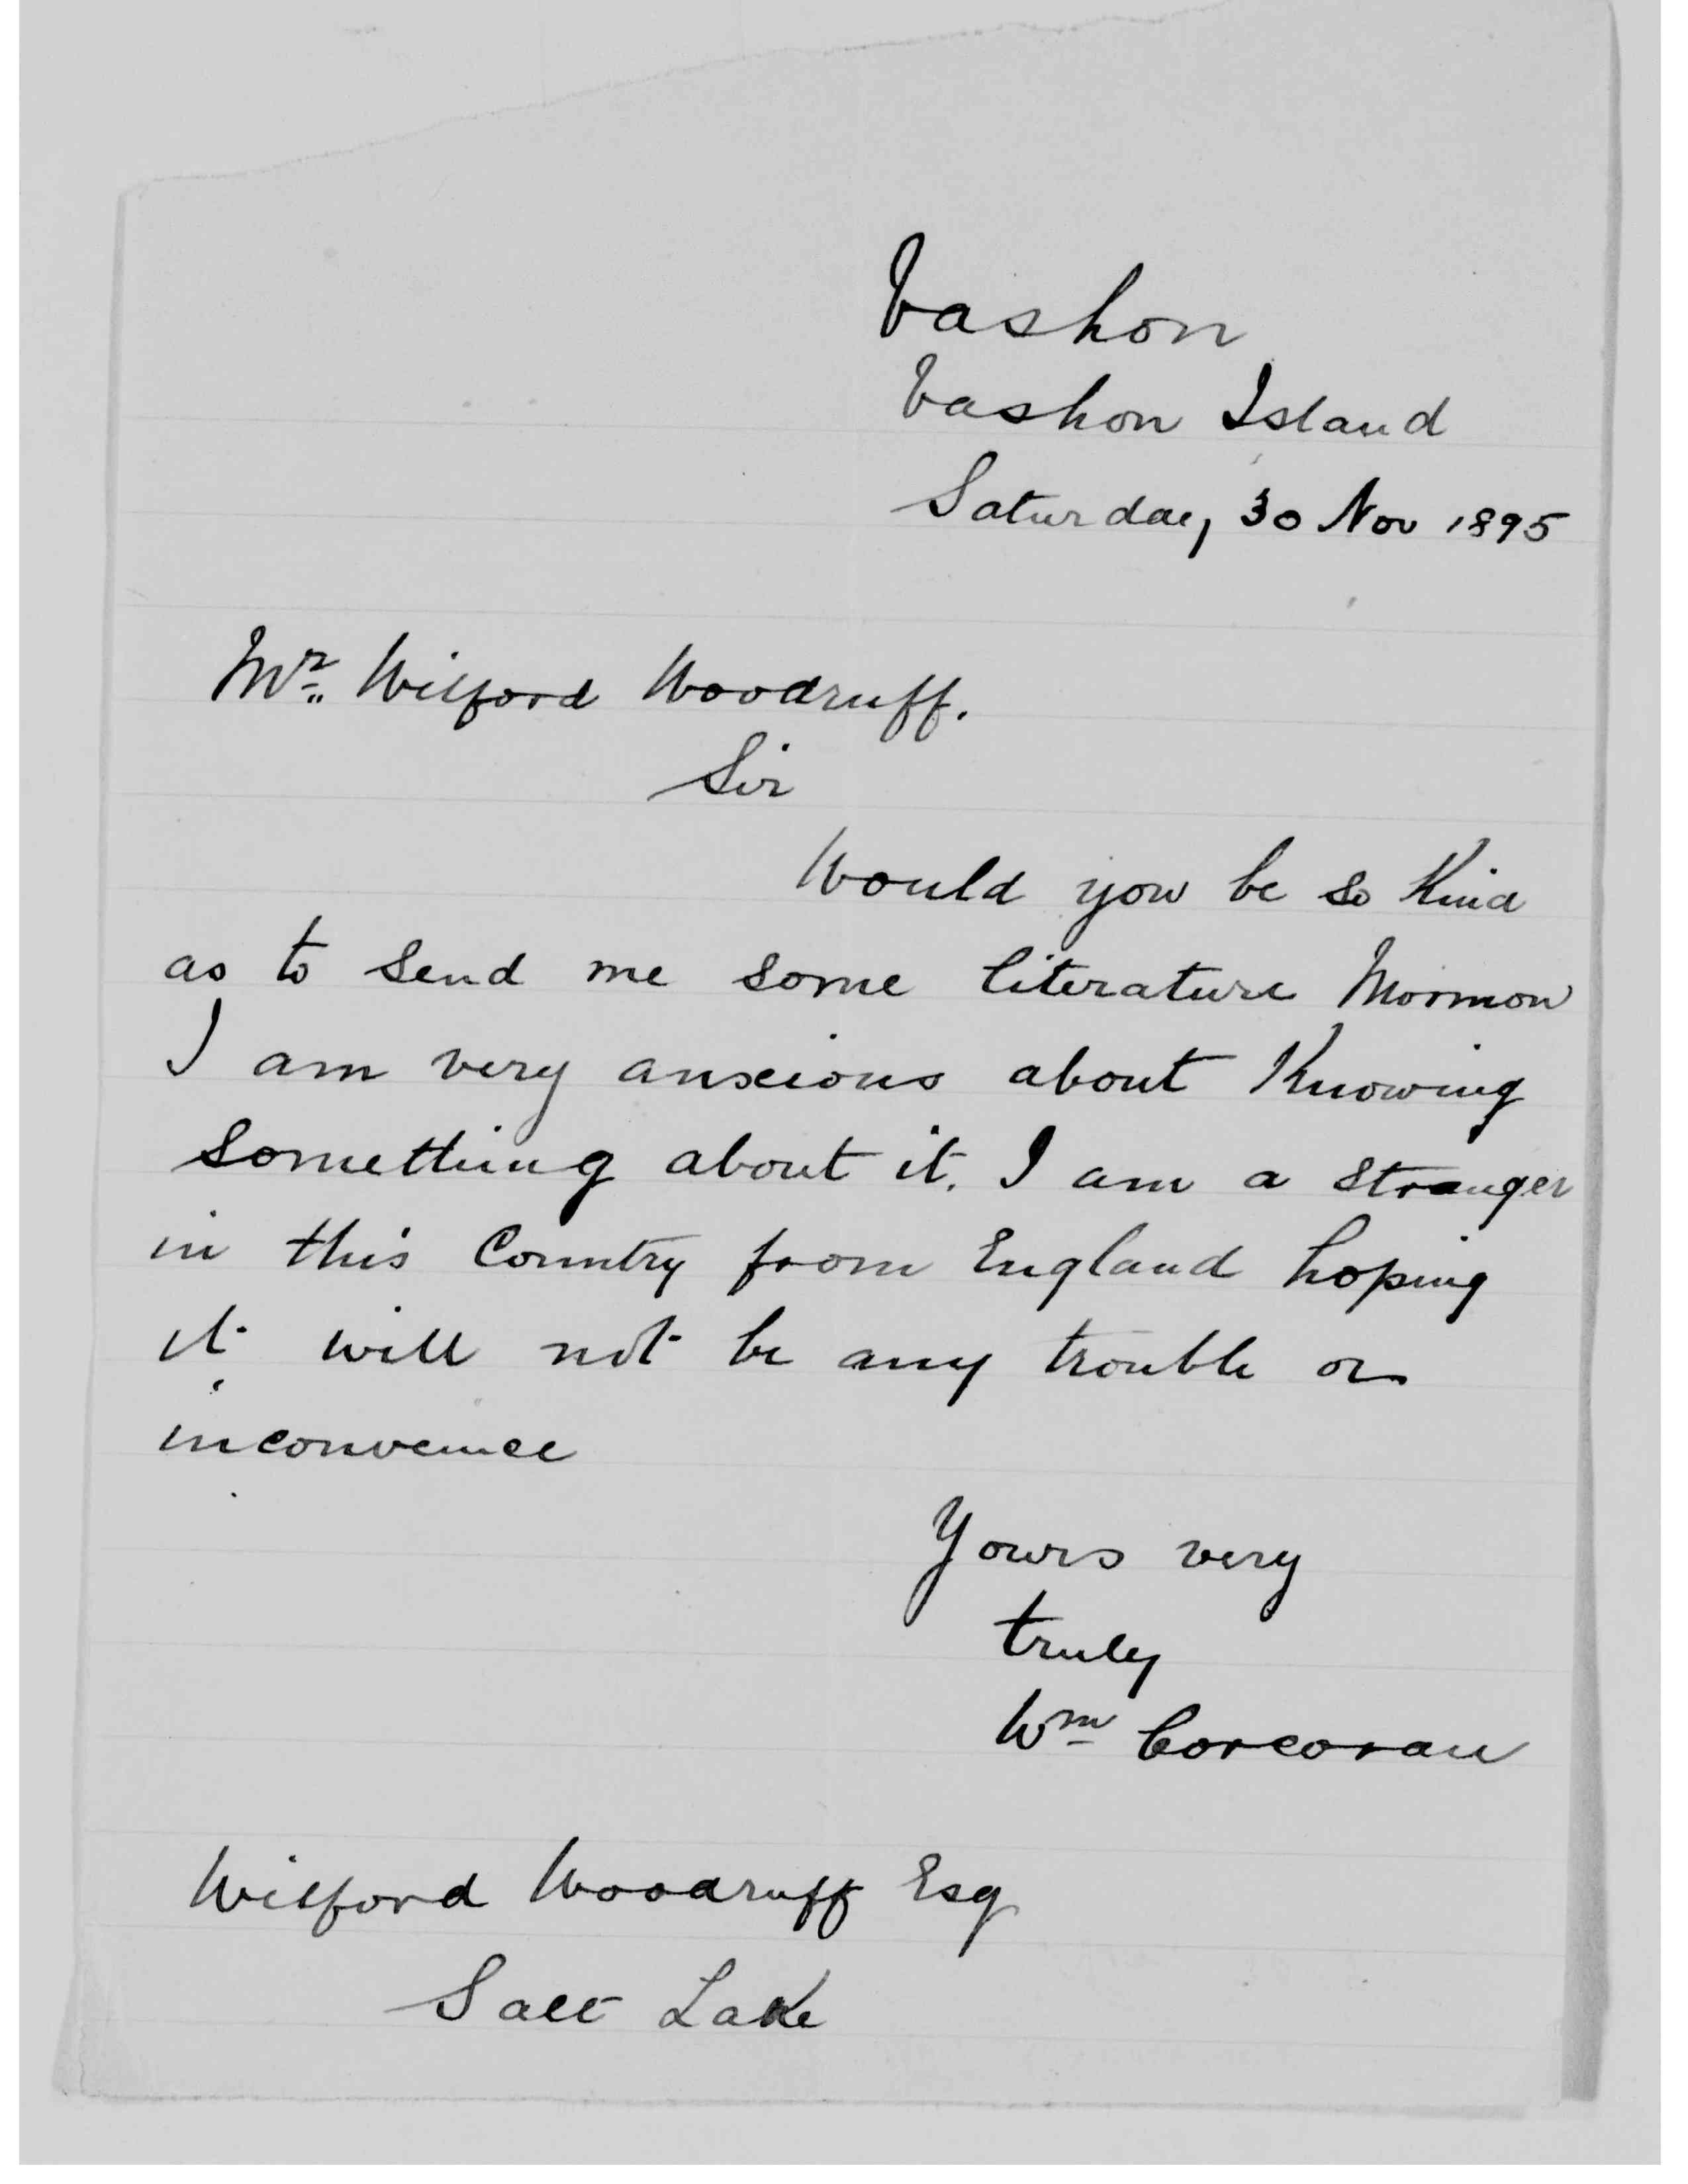 Vashon
Vashon Island
Saturday, 30 Nov 1895
Mr. Wilford Woodruff.
Sir
Would you be so Kind
as to Send me Some literature Mormon
I am very anxious about Knowing
Something about it. I am a Stranger
in this Country from England hoping
it will not be any trouble or
inconvenince
Yours very
truly
Wm Corcoran
Wilford Woodruff Esq
Salt Lake